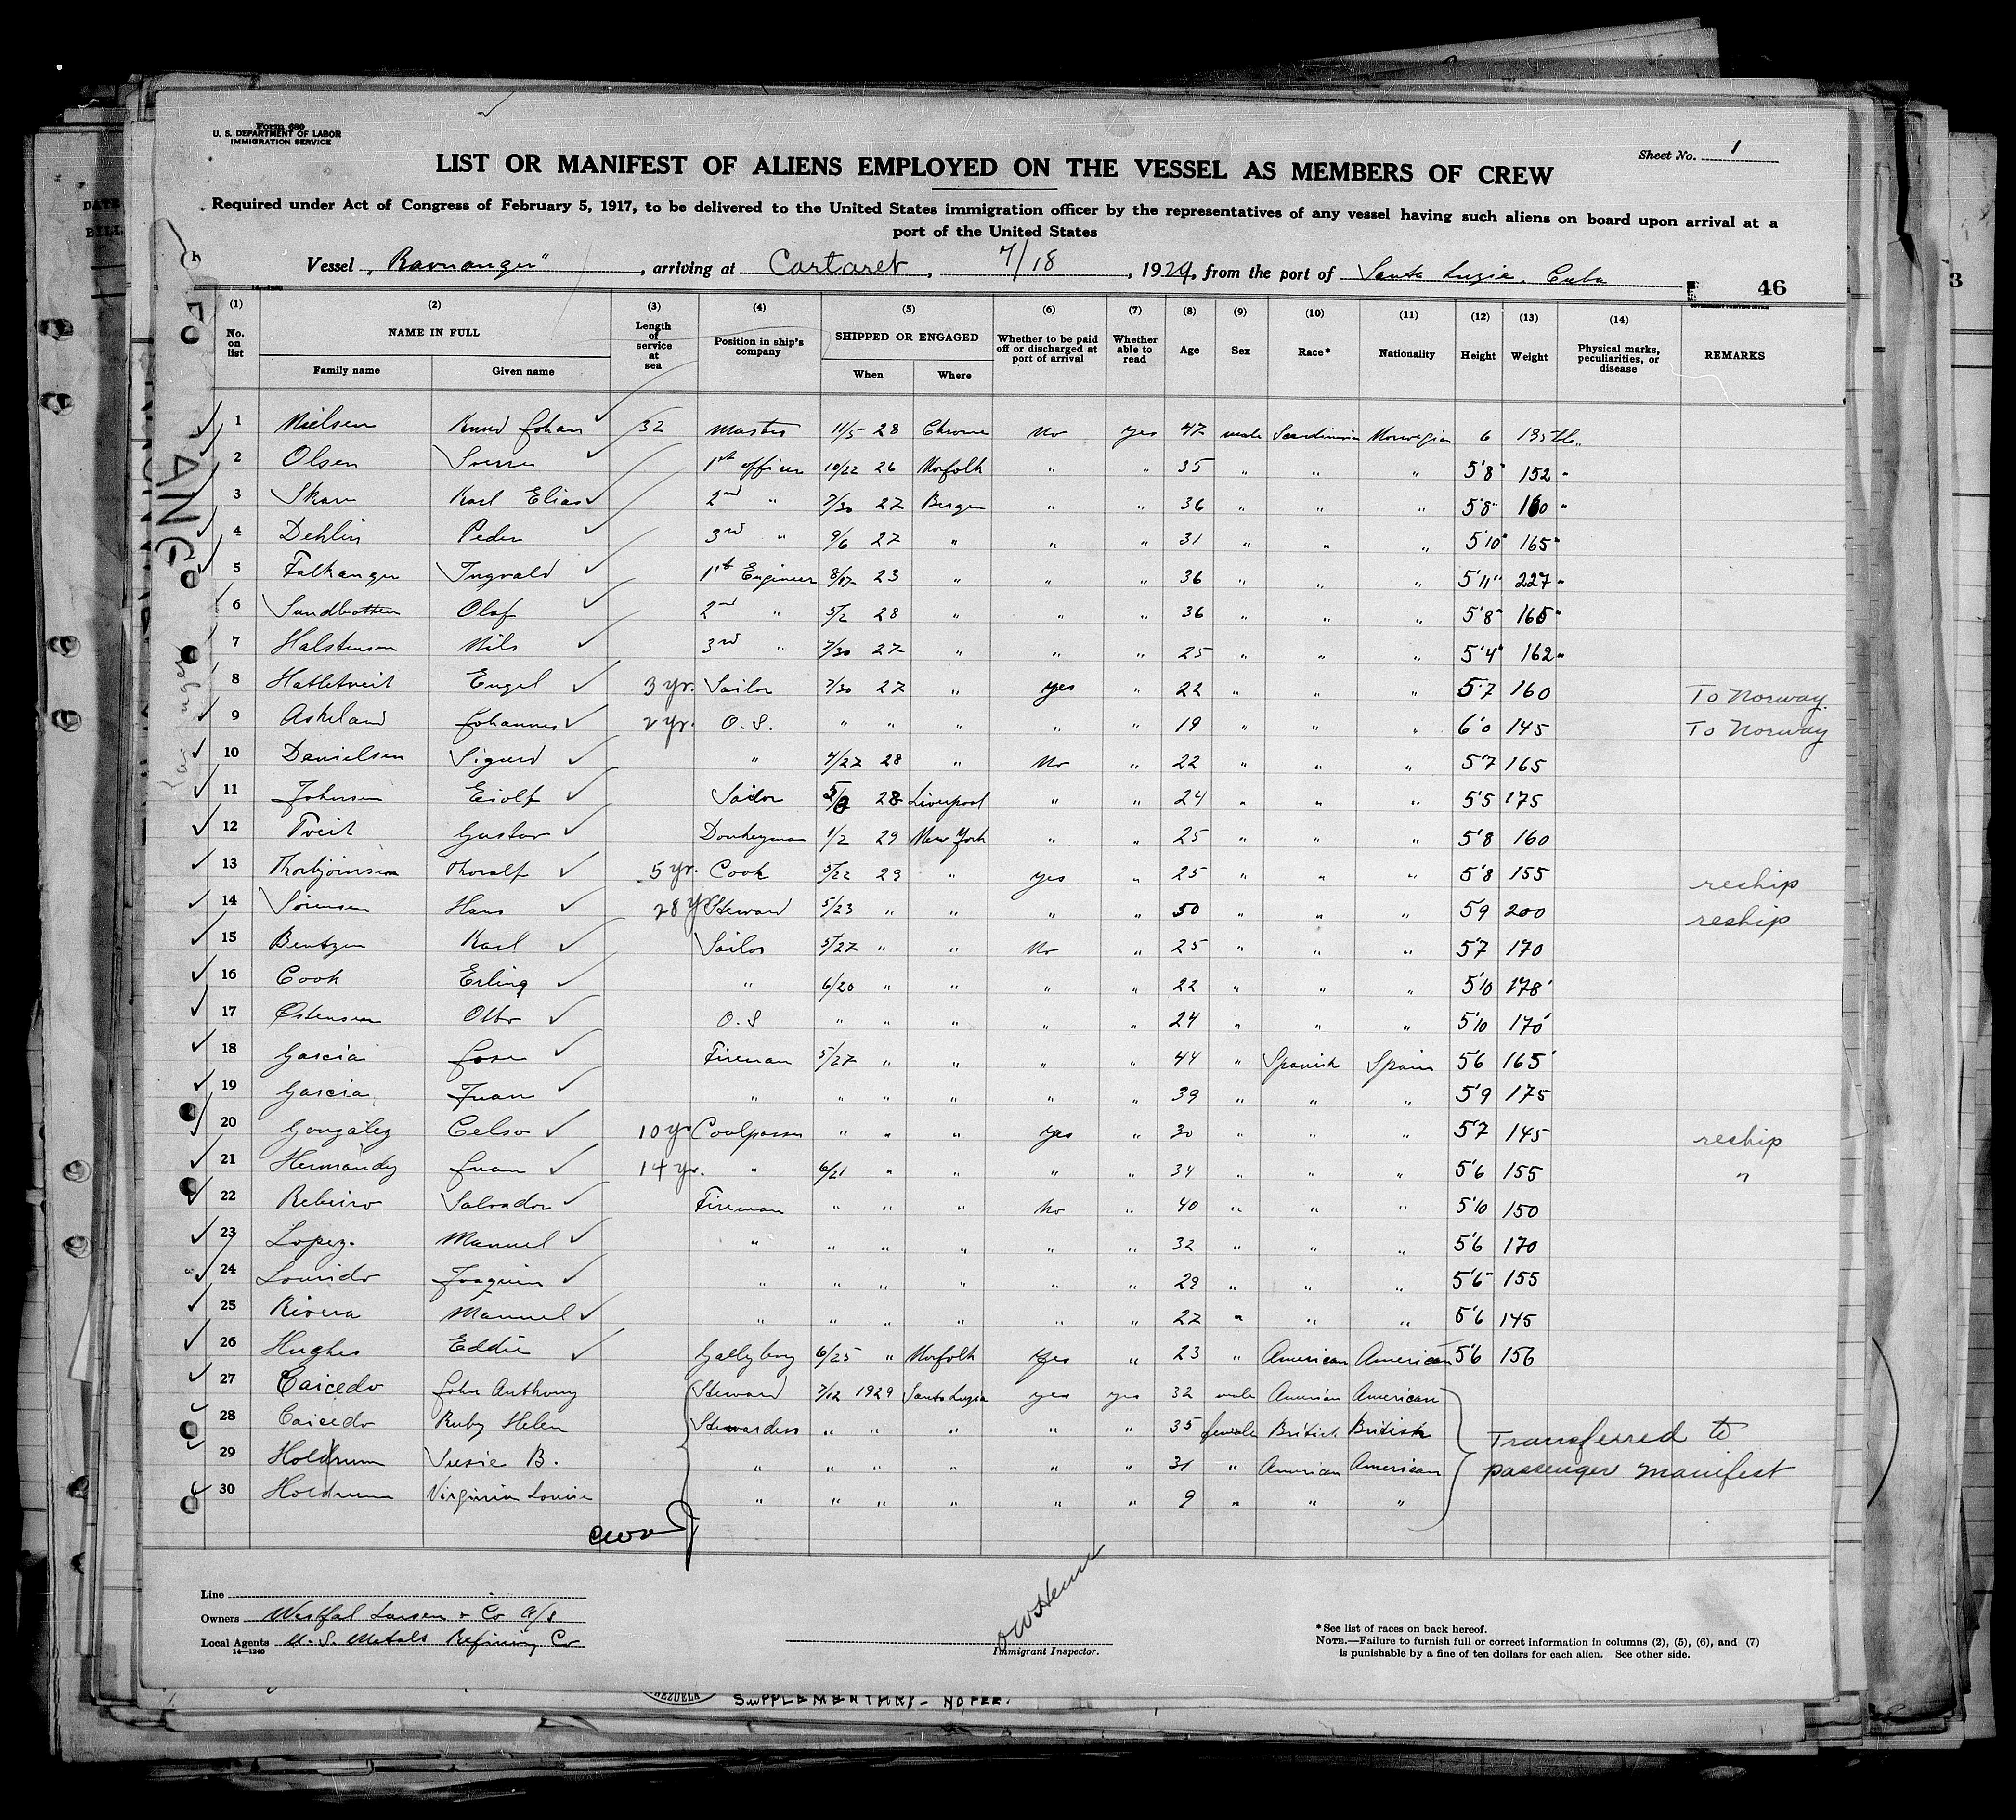 Form 680
U. S. DEPARTMENT OF LABOR
IMMIGRATION SERVICE
Sheet No. 1
LIST OR MANIFEST OF ALIENS EMPLOYED ON THE VESSEL AS MEMBERS OF CREW
Required under Act of Congress of February 5, 1917, to be delivered to the United States immigration officer by the representatives of any vessel having such aliens on board upon arrival at a
port of the United States
Vessel "Ravnanger", arriving at Cartaret, 7/18, 1929, from the port of Santa Luzia, Cuba
46
(1) (2) (3) (4) (5) (6) (7) (8) (9) (10) (11) (12) (13) (14)
No. on list NAME IN FULL Length of service at sea Position in ship's company SHIPPED OR ENGAGED Whether to be paid off or discharged at port of arrival Whether able to read Age Sex Race* Nationality Height Weight Physical marks, peculiarities, or disease REMARKS
Family name Given name When Where
1 Nielsen Knud Johan 32 Master 11/5 28 Chrome No yes 47 male Scandinavian Norwegian 6 195 lb.
2 Olsen Sverre 1st officer 10/22 26 Norfolk " " 35 " " " 5'8" 152 "
3 Skare Karl Elias 2nd " 7/30 27 Bergen " " 36 " " " 5'8" 160 "
4 Dehlin Peder 3rd " 9/6 27 " " " 31 " " " 5'10" 165 "
5 Falkanger Ingvald 1st Engineer 8/17 23 " " " 36 " " " 5'11" 227 "
6 Sundbotten Olaf 2nd " 5/2 28 " " " 36 " " " 5'8" 165 "
7 Halstensen Nils 3rd " 7/30 27 " " " 25 " " " 5'4" 162 "
8 Hatletveit Engel 3 yr. Sailor 7/30 27 " yes " 22 " " " 5'7 160 To Norway.
9 Askeland Johannes 2 yr. O.S. " " " " " 19 " " " 6'0 145 To Norway
10 Danielsen Sigurd " 4/27 28 " No " 22 " " " 5'7 165
11 Johnsen Eiolf Sailor 28 Liverpool " " 24 " " " 5'5 175
12 Tveit Gustav Donkeyman 1/2 29 New York " " 25 " " " 5'8 160
13 Thorbjörnsen Thoralf 5 yr. Cook 5/22 29 " yes " 25 " " " 5'8 155 reship
14 Sörensen Hans 28 yr Steward 5/23 " " " " 50 " " " 5'9 200 reship
15 Bentzen Karl Sailor 5/27 " " No " 25 " " " 5'7 170
16 Cook Erling " 6/20 " " " " 22 " " " 5'10 178
17 Östensen Otto O.S " " " " " 24 " " " 5'10 170
18 Garcia Jose Fireman 5/27 " " " " 44 " Spanish Spain 5'6 165
19 Garcia Juan " " " " " " 39 " " " 5'9 175
20 Gonzalez Celso 10 yr Coalpasser " " " yes " 30 " " " 5'7 145 reship
21 Hernandez Juan 14 yr. " 6/21 " " " " 34 " " " 5'6 155 "
22 Rebeiro Salvador Fireman " " " No " 40 " " " 5'10 150
23 Lopez. Manuel " " " " " " 32 " " " 5'6 170
24 Lourido Joaquin " " " " " " 29 " " " 5'6 155
25 Rivera Manuel " " " " " " 27 " " " 5'6 145
26 Hughes Eddie Galleyboy 6/25 " Norfolk Yes " 23 " American American 5'6 156
27 Caicedo John Anthony Steward 7/12 1929 Santa Luzia yes yes 32 male American American
28 Caicedo Ruby Helen Stewardess " " " " " 35 female British British
29 Holdrum Susie B. " " " " " " 31 " American American
30 Holdrum Virginia Louise " " " " " " 9 " " "
Transferred to
passenger manifest
Line
Owners Westfal Larsen & Co A/S
Local Agents U. S. Metals Refining Co
14—1240
Immigrant Inspector.
*See list of races on back hereof.
NOTE.—Failure to furnish full or correct information in columns (2), (5), (6), and (7)
is punishable by a fine of ten dollars for each alien. See other side.
SUPPLEMENTARY - NO FEE.